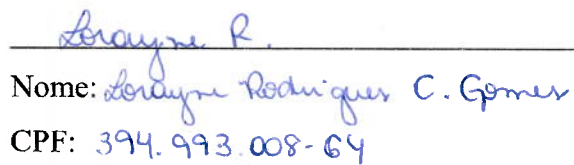 Lorayne R.
Nome: Lorayne Rodrigues C. Gomes
CPF: 394.993.008-64